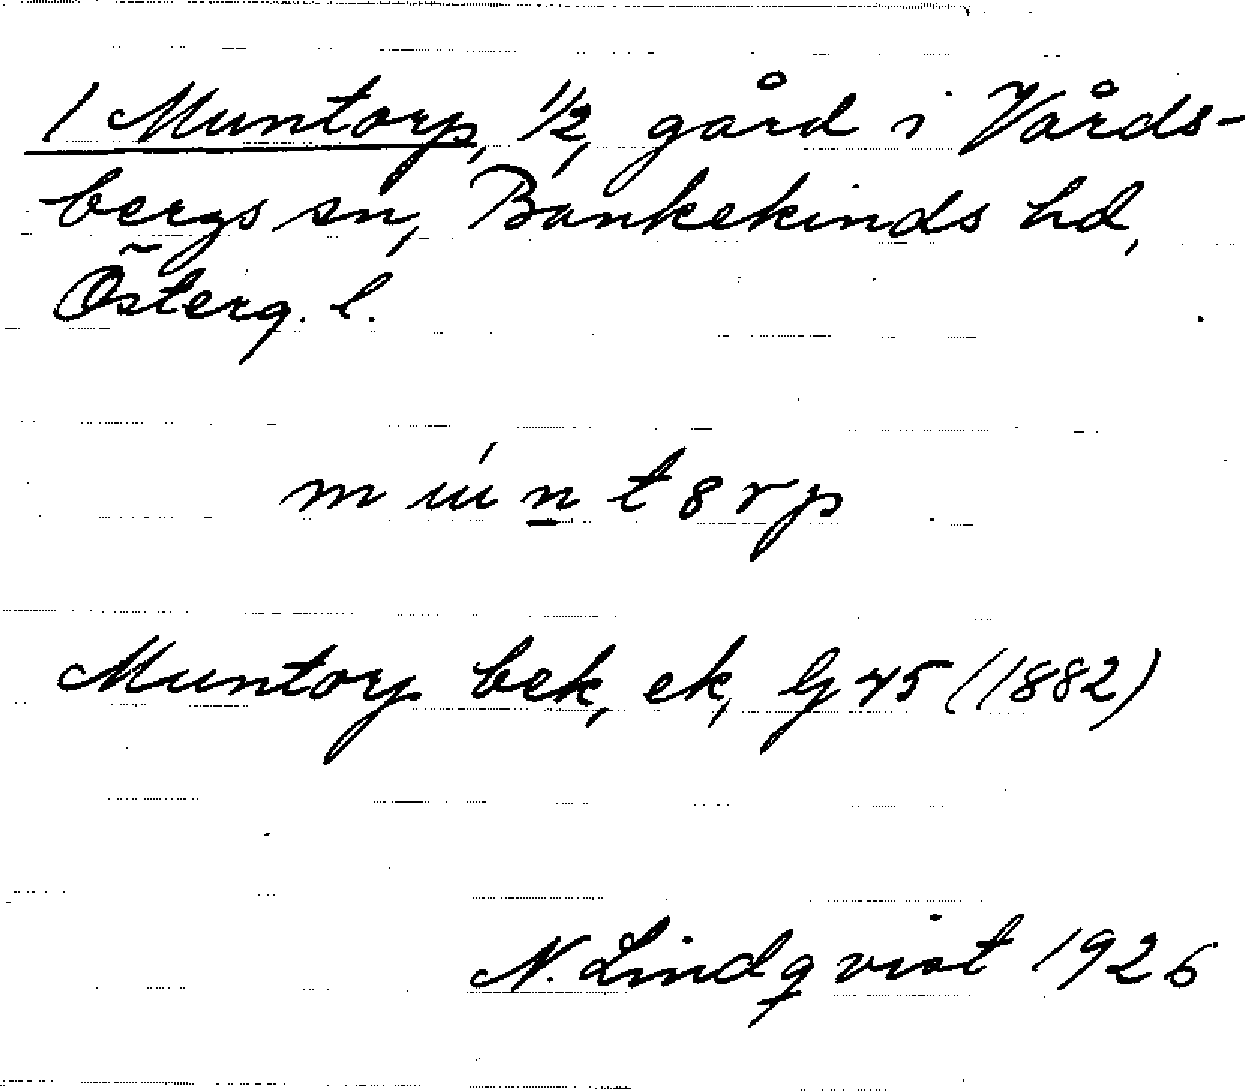 1 Muntorp, 1/2 gård i Vårds-
bergs sn, Bankekinds hd,
Österg. l.
múnt8rp
Muntorp bek, ek, G 45 (1882)
N. Lindqvist 1926